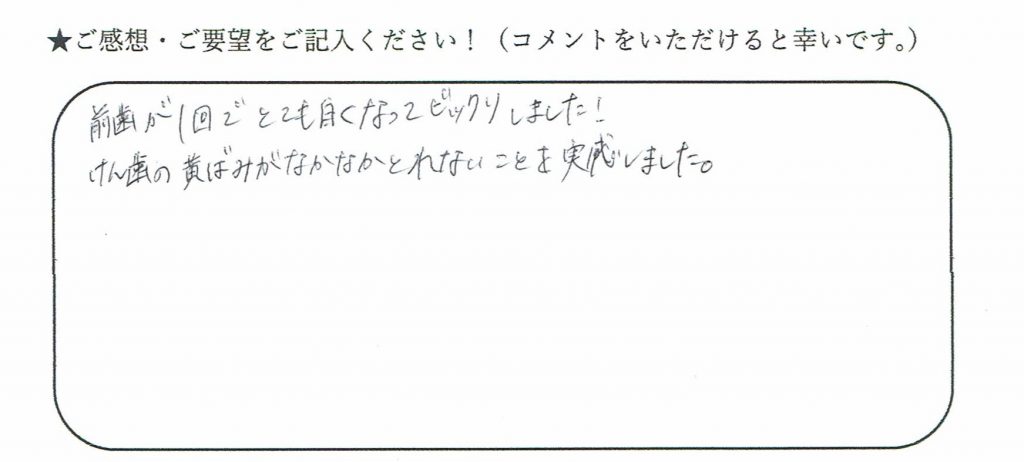 ★ご感想・ご要望をご記入ください！（コメントをいただけると幸いです。）
前歯が1回でとても白くなってビックリしました！
けん歯の黄ばみがなかなかとれないことを実感しました。